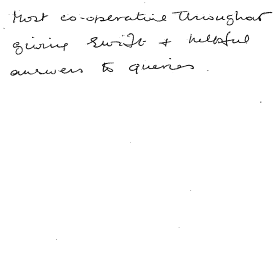 Most co-operative throughout
giving swift + helpful
answers to queries.